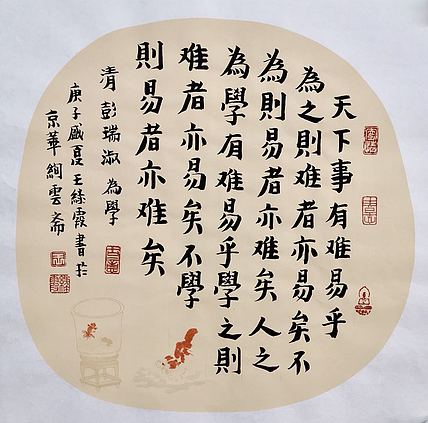 天下事有难易乎
為之則难者亦易矣不
為則易者亦难矣人之
為學有难易乎學之則
难者亦易矣不學
則易者亦难矣
清彭瑞淑為學
庚子盛夏王霞書於
京華絢雲斋